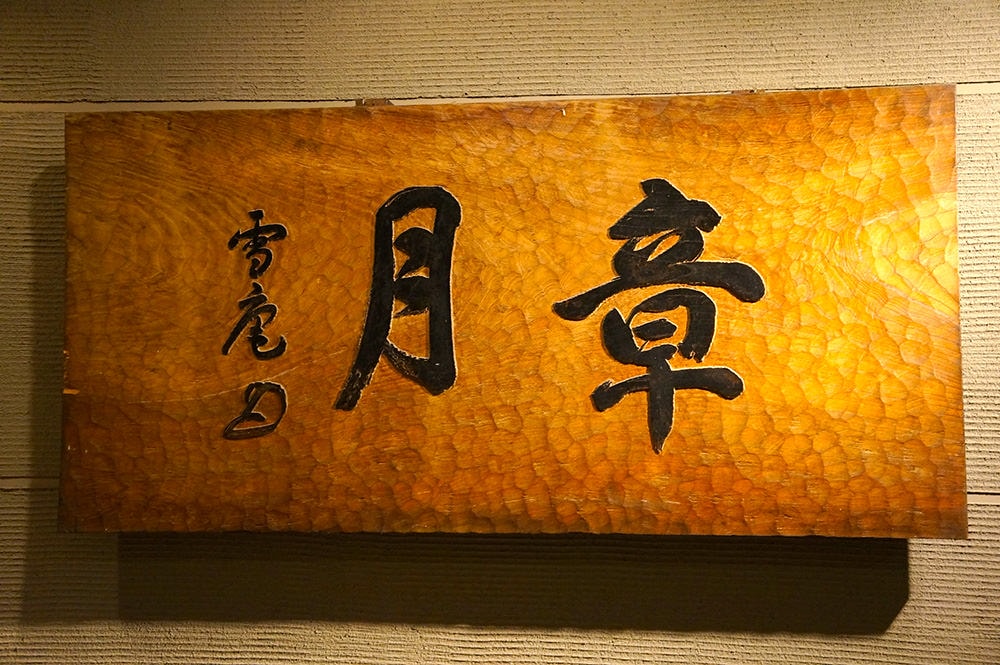 章月
雪庵